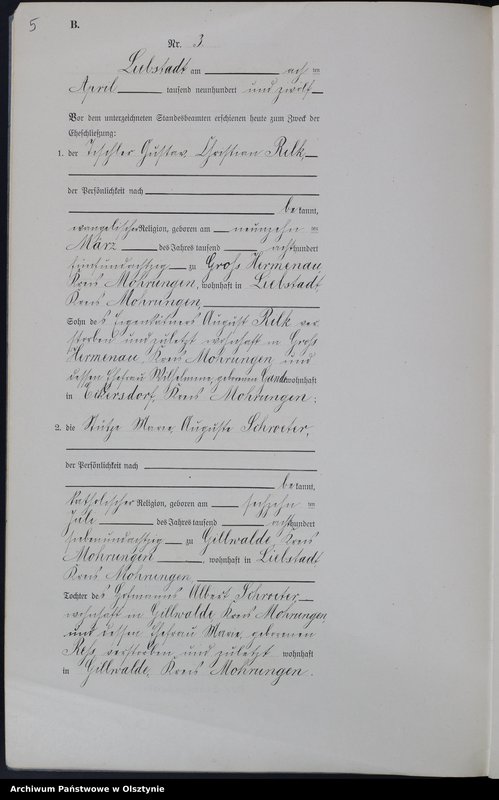 5
B.
Nr. 3.
Liebstadt am acht ten
April tausend neunhundert und zwölf
Vor dem unterzeichneten Standesbeamten erschienen heute zum Zweck der
Eheschließung:
1. der Tischler Gustav Christian Relk,
der Persönlichkeit nach
be kannt,
evangelischer Religion, geboren am neunzehn ten
März des Jahres tausend acht hundert
fünfundachtzig zu Groß Hermenau
Kreis Mohrungen, wohnhaft in Liebstadt
Kreis Mohrungen,
Sohn des Eigenkätners August Relk ver
storben und zuletzt wohnhaft in Groß
Hermenau, Kreis Mohrungen und
dessen Ehefrau Wilhelmine, geborenen wohnhaft
in Eckersdorf, Kreis Mohrungen.
2. die Stütze Marie, Auguste Schroeter,
der Persönlichkeit nach
be kannt,
katholischer Religion, geboren am sechzehn ten
Juli des Jahres tausend acht hundert
siebenundachtzig zu Gillwalde Kreis
Mohrungen, wohnhaft in Liebstadt
Kreis Mohrungen
Tochter des Hofmanns Albert Schroeter
wohnhaft in Gillwalde, Kreis Mohrungen,
und dessen Ehefrau Marie, geborenen
verstorben und zuletzt wohnhaft
in Gillwalde, Kreis Mohrungen.
Archiwum Państwowe w Olsztynie